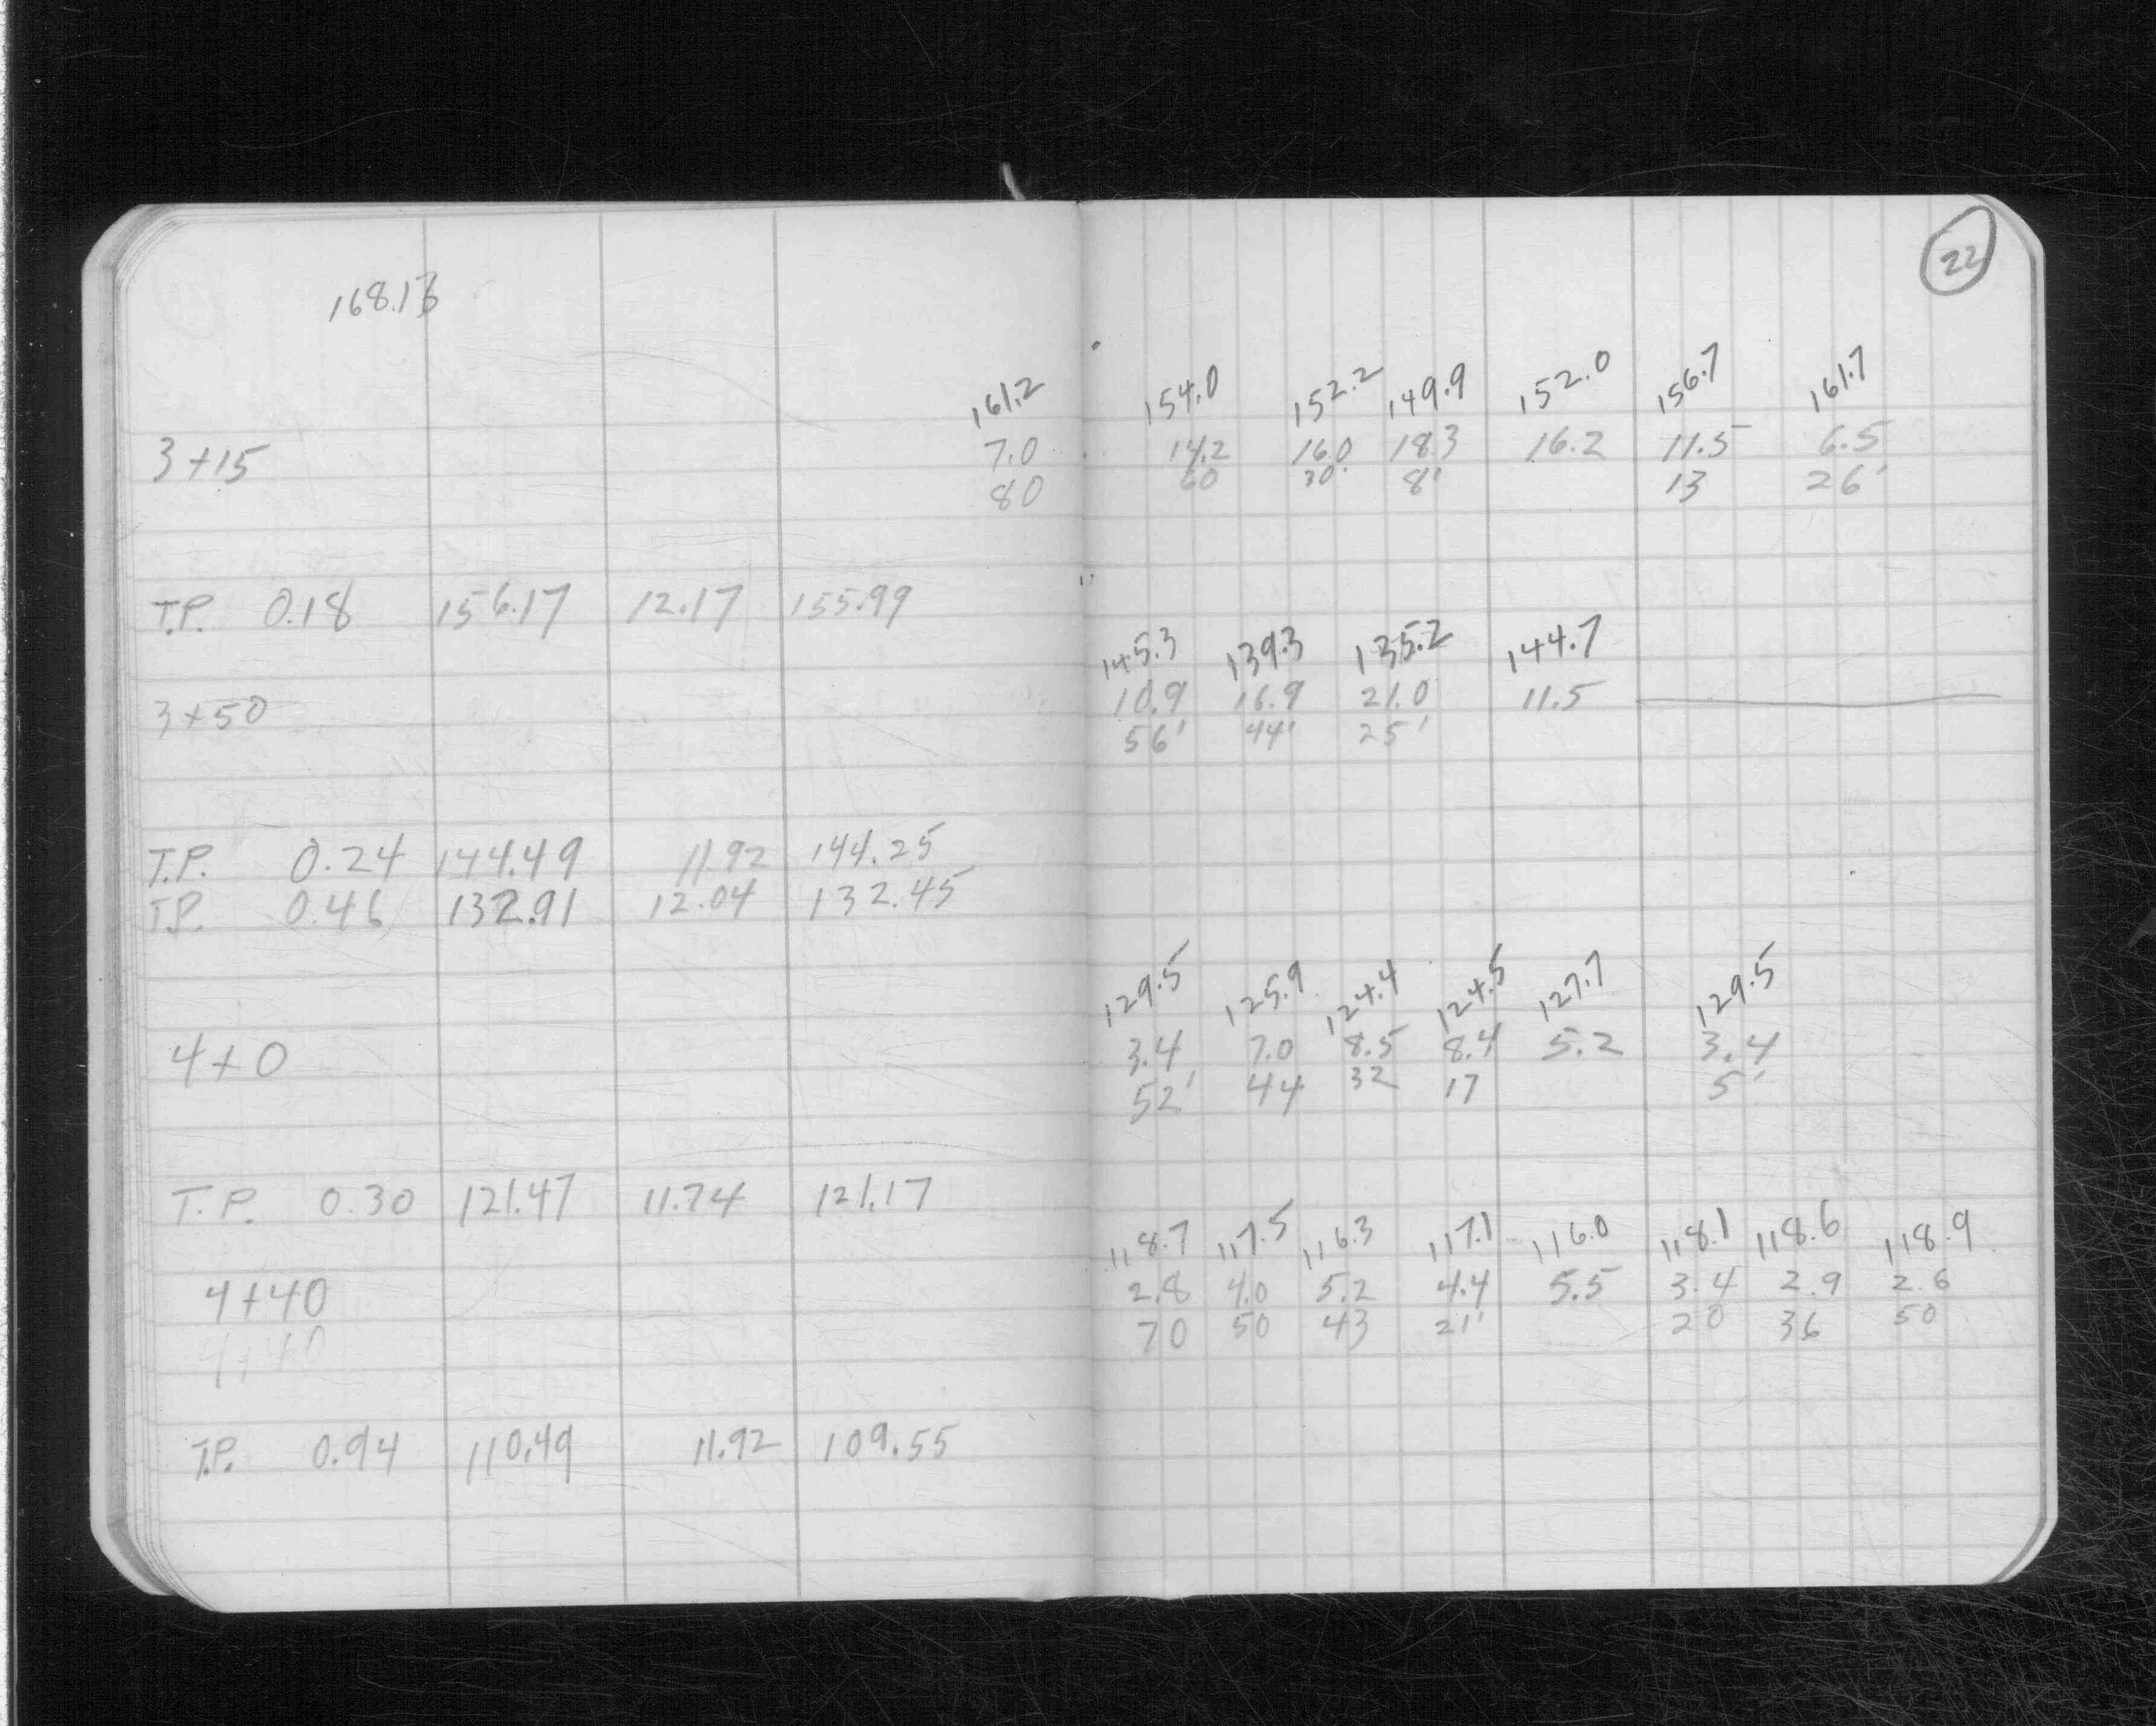 22
168.13
161.2 154.0 152.2 149.9 152.0 156.7 161.7
3+15 7.0 14.2 16.0 18.3 16.2 11.5 6.5
80 60 30' 8' 13 26'
T.P. 0.18 156.17 12.17 155.99
145.3 139.3 135.2 144.7
3+50 10.9 16.9 21.0 11.5
56' 44' 25'
T.P. 0.24 144.49 11.92 144.25
T.P. 0.46 132.91 12.04 132.45
129.5 125.9 124.4 124.5 127.7 129.5
4+0 3.4 7.0 8.5 8.4 5.2 3.4
52' 44 32 17 5'
T.P. 0.30 121.47 11.74 121.17
118.7 117.5 116.3 117.1 116.0 118.1 118.6 118.9
4+40 2.8 4.0 5.2 4.4 5.5 3.4 2.9 2.6
70 50 43 21' 20 36 50
4+40
T.P. 0.94 110.49 11.92 109.55